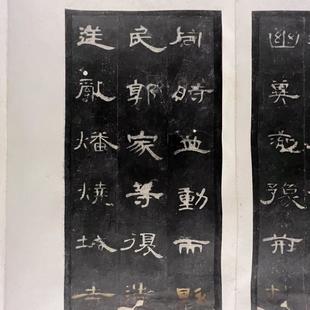 幽冀兗豫荊
同時並動而縣
民郭家等復造
逆亂燔燒城寺